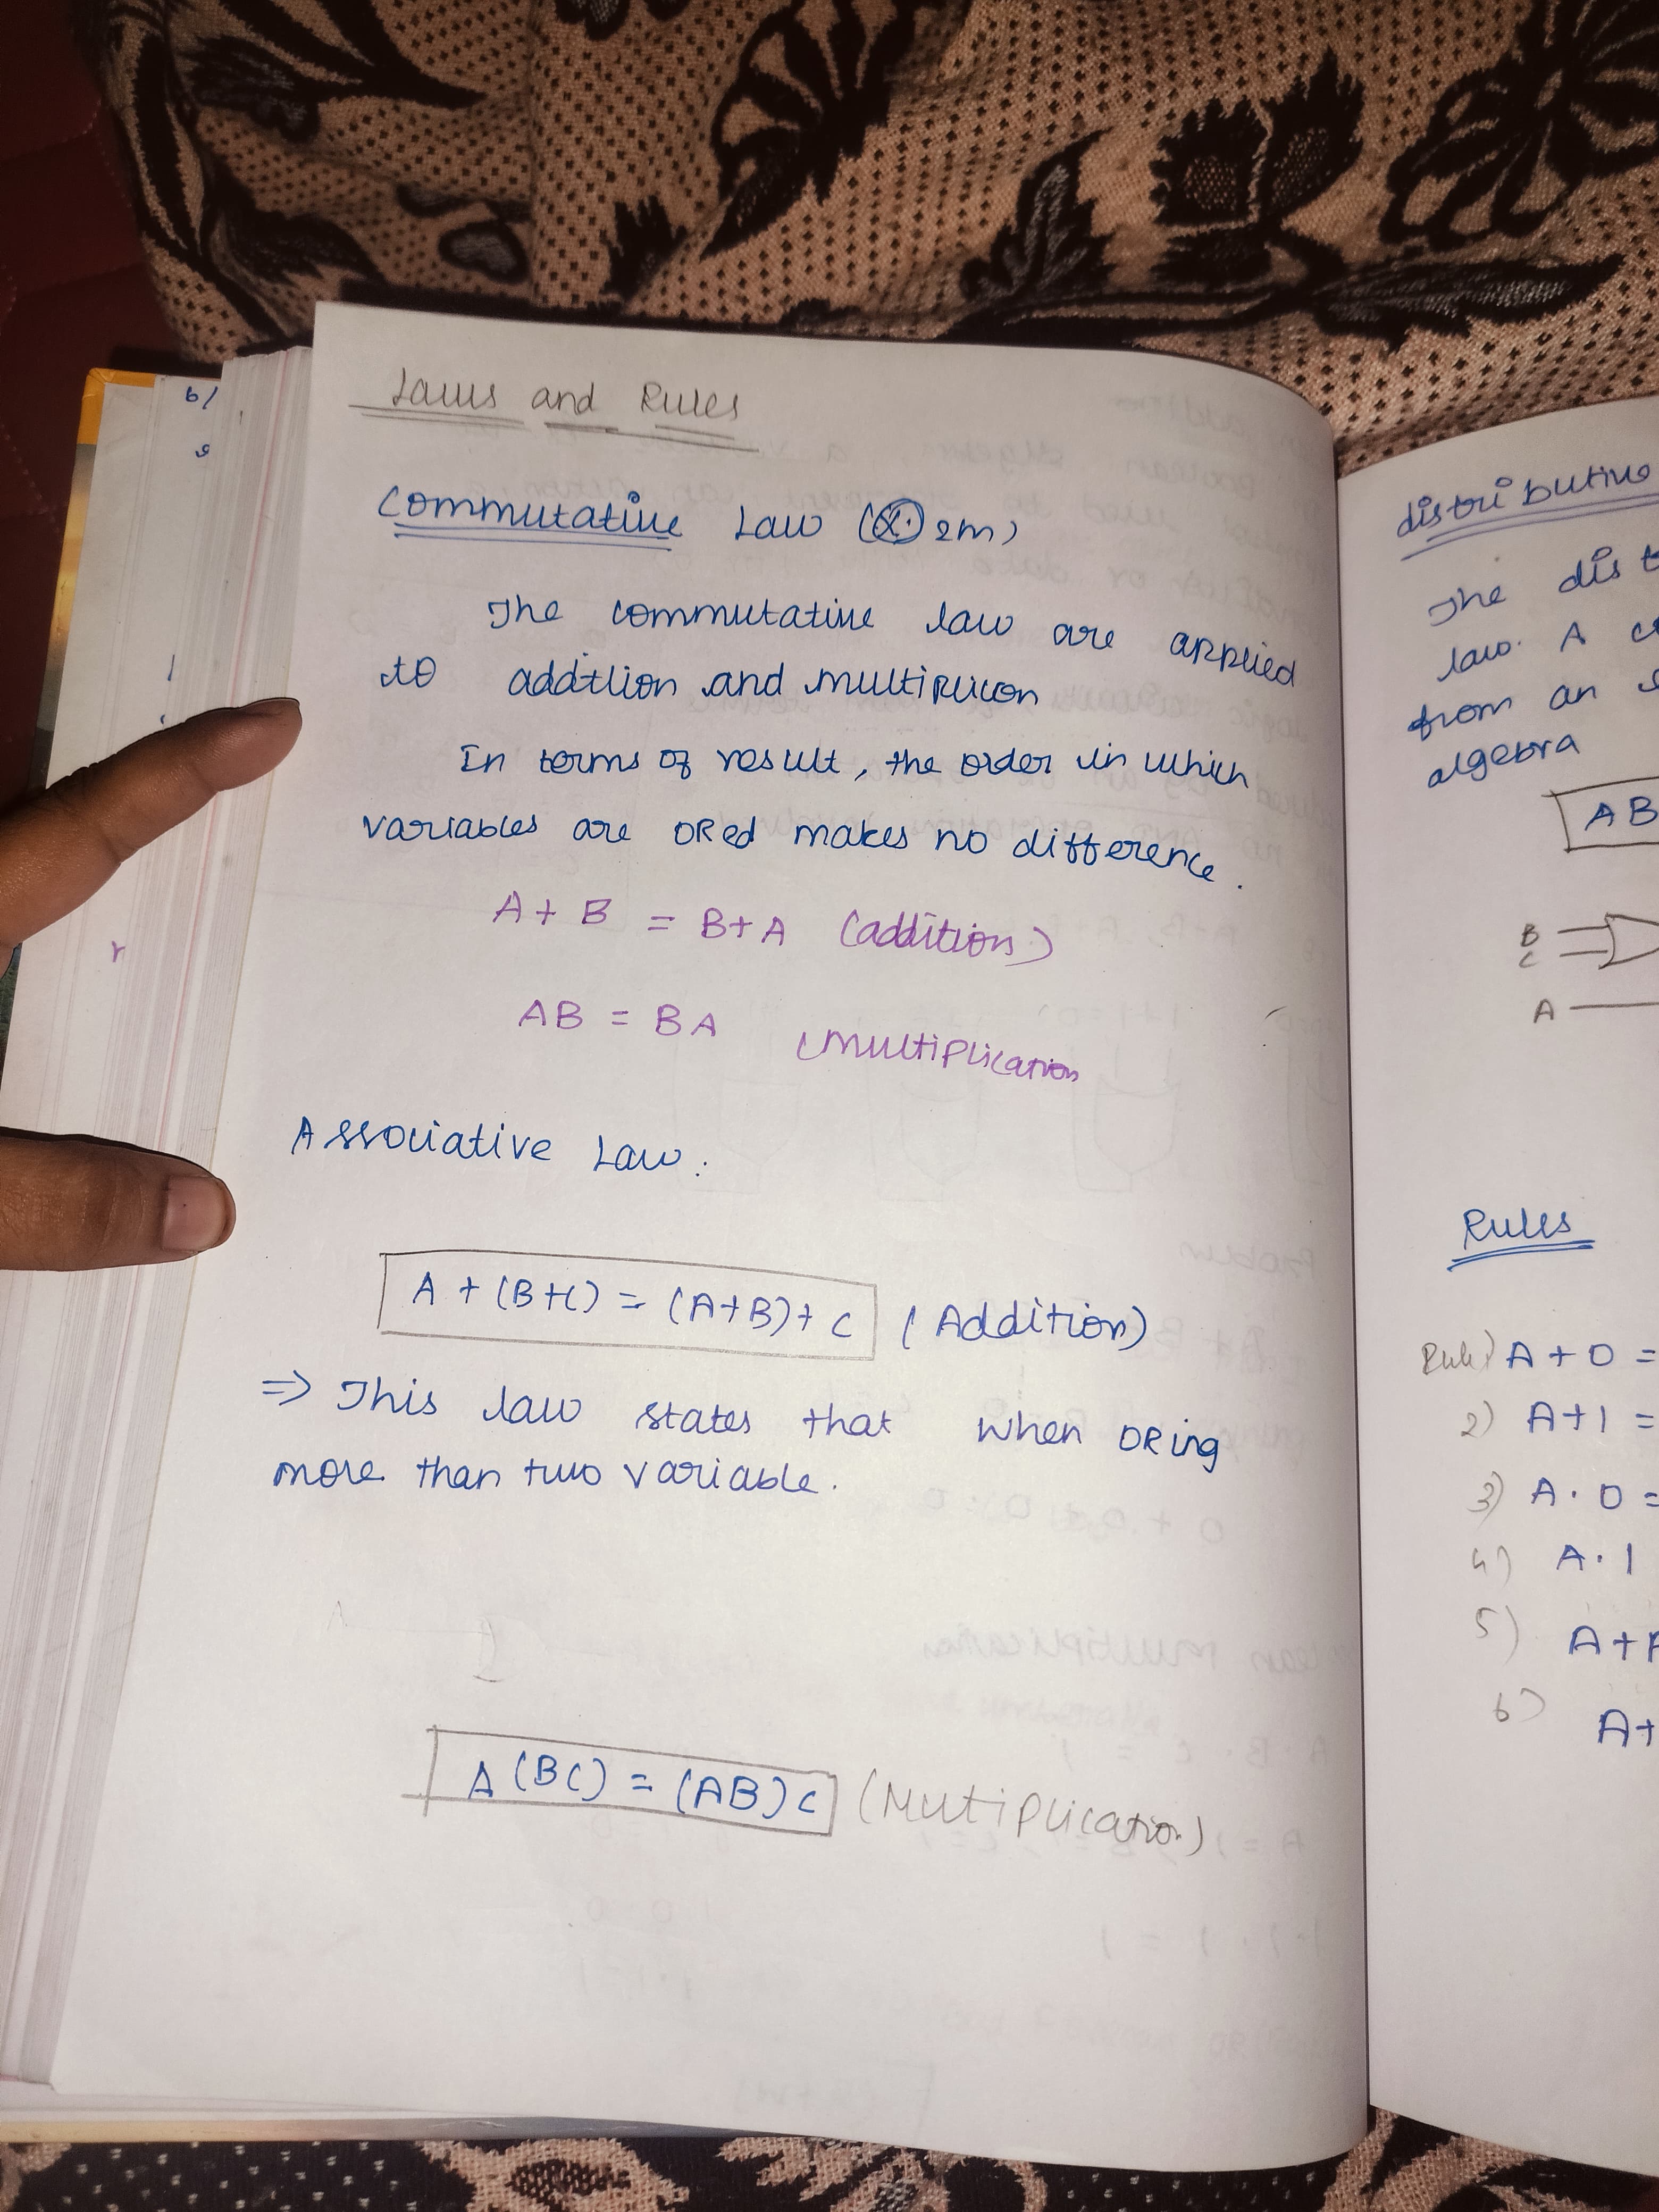 Laws and Rules
Commutative Law (X. 2m)
The commutative law are applied
to addtlion and multiplicon
In terms of result, the order in which
variables are ORed makes no difference.
A + B = B+A (addition)
AB = BA (Multiplication
Associative Law.
A + (B+C) = (A+B)+ C (Addition)
=> This law states that when ORing
more than two variable.
A (BC) = (AB) C (Mutiplication)
distributive
The dist
law. A
from an
algebra
AB
B
C
A
Rules
Rule1) A + 0 =
2) A+1 =
3) A . 0 =
4) A . 1
5) A+A
6) A+